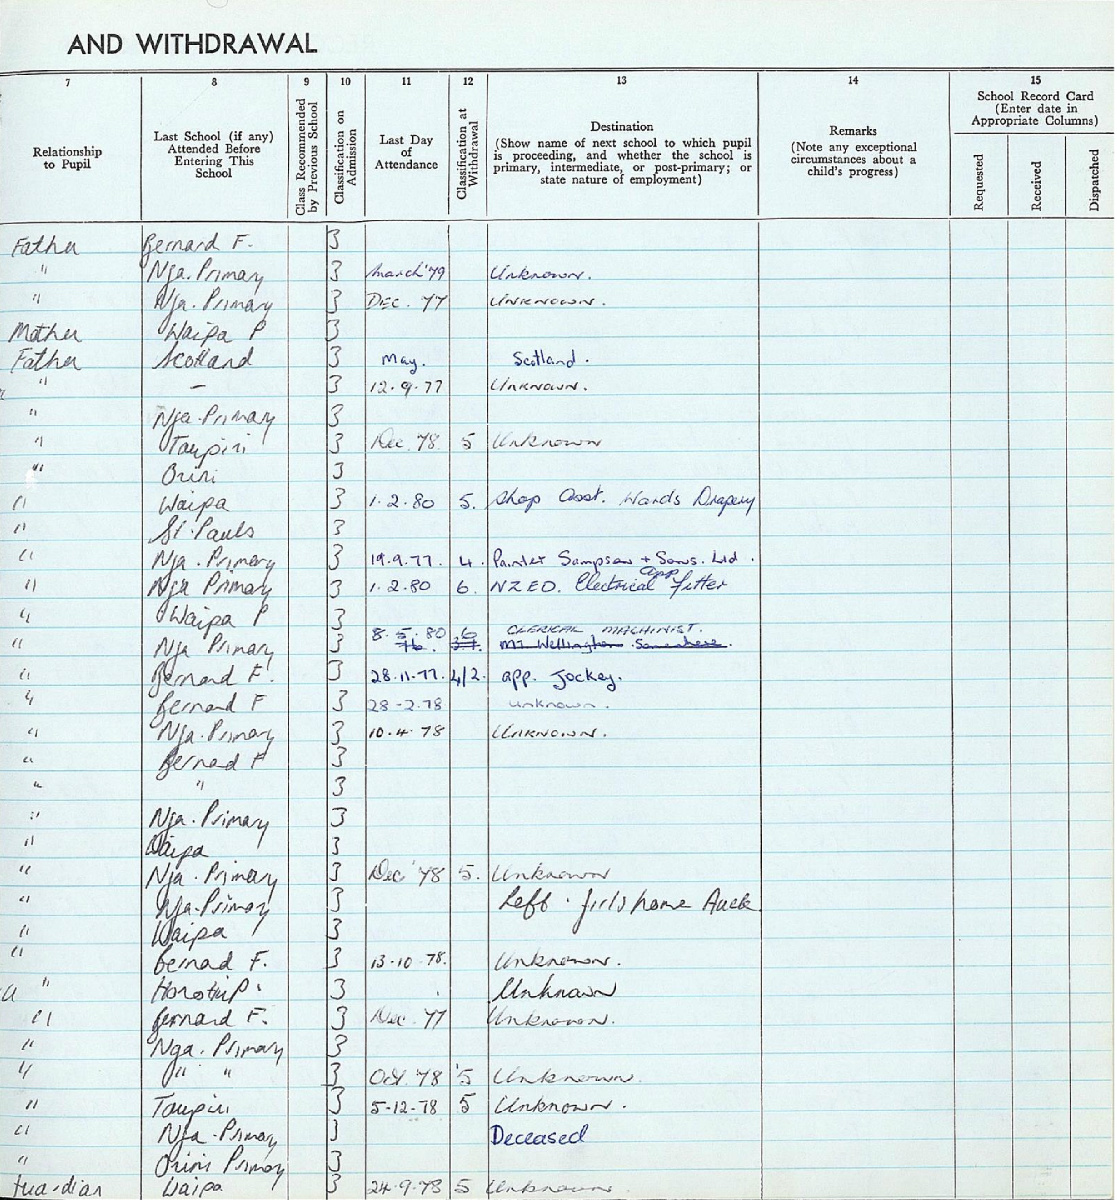 AND WITHDRAWAL
7 8 9 10 11 12 13 14 15
Relationship to Pupil
Last School (if any) Attended Before Entering This School
Class Recommended by Previous School
Classification on Admission
Last Day of Attendance
Classification at Withdrawal
Destination (Show name of next school to which pupil is proceeding, and whether the school is primary, intermediate, or post-primary; or state nature of employment)
Remarks (Note any exceptional circumstances about a child's progress)
School Record Card (Enter date in Appropriate Columns)
Requested Received Dispatched
Father Bernard F. 3
" Nga. Primary 3 March '79 Unknown.
" Nga. Primary 3 DEC. 77 UNKNOWN.
Mother Waipa P 3
Father Scotland 3 May. Scotland.
" – 3 12.9.77 Unknown.
" Nga. Primary 3
" Taupiri 3 Dec. 78 5 Unknown
" Orini 3
" Waipa 3 1.2.80 5. Shop Asst. Wards Drapery
" St. Pauls 3
" Nga. Primary 3 19.9.77. 4. Painter Sampson + Sons. Ltd.
" Nga Primary 3 1.2.80 6. NZED. Electrical app Fitter
" Waipa P 3
" Nga Primary 3 8.5.80 6 CLERICAL MACHINIST.
76. Mt. Wellington Somewhere.
" Bernard F. 3 28.11.77. 4/2. app. Jockey.
" Bernard F 3 28-2.78 unknown.
" Nga. Primary 3 10.4.78 UNKNOWN.
" Bernad F 3
" " 3
" Nga. Primary 3
" Waipa 3
" Nga. Primary 3 Dec '78 5. Unknown
" Nga. Primary 3 Left. girls home Auck.
" Waipa 3
" Bernad F. 3 13.10.78. Unknown.
" Horotiu P. 3 Unknown
" Bernard F. 3 Dec. 77 Unknown.
" Nga. Primary 3
" " " 3 Oct. '78 5 Unknown.
" Taupiri 3 5-12-78 5 Unknown.
" Nga. Primary 3 Deceased
" Orini Primary 3
Guardian Waipa 3 24.9.78 5 Unknown.